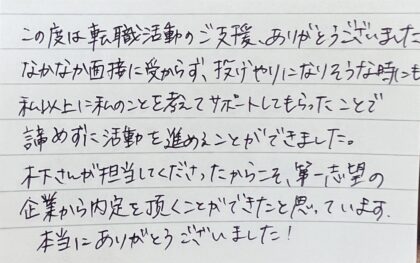 この度は転職活動のご支援、ありがとうございました
なかなか面接に受からず、投げやりになりそうな時にも
私以上に私のことを考えてサポートしてもらったことで
諦めずに活動を進めることができました。
木下さんが担当してくださったからこそ、第一志望の
企業から内定を頂くことができたと思っています.
本当にありがとうございました!